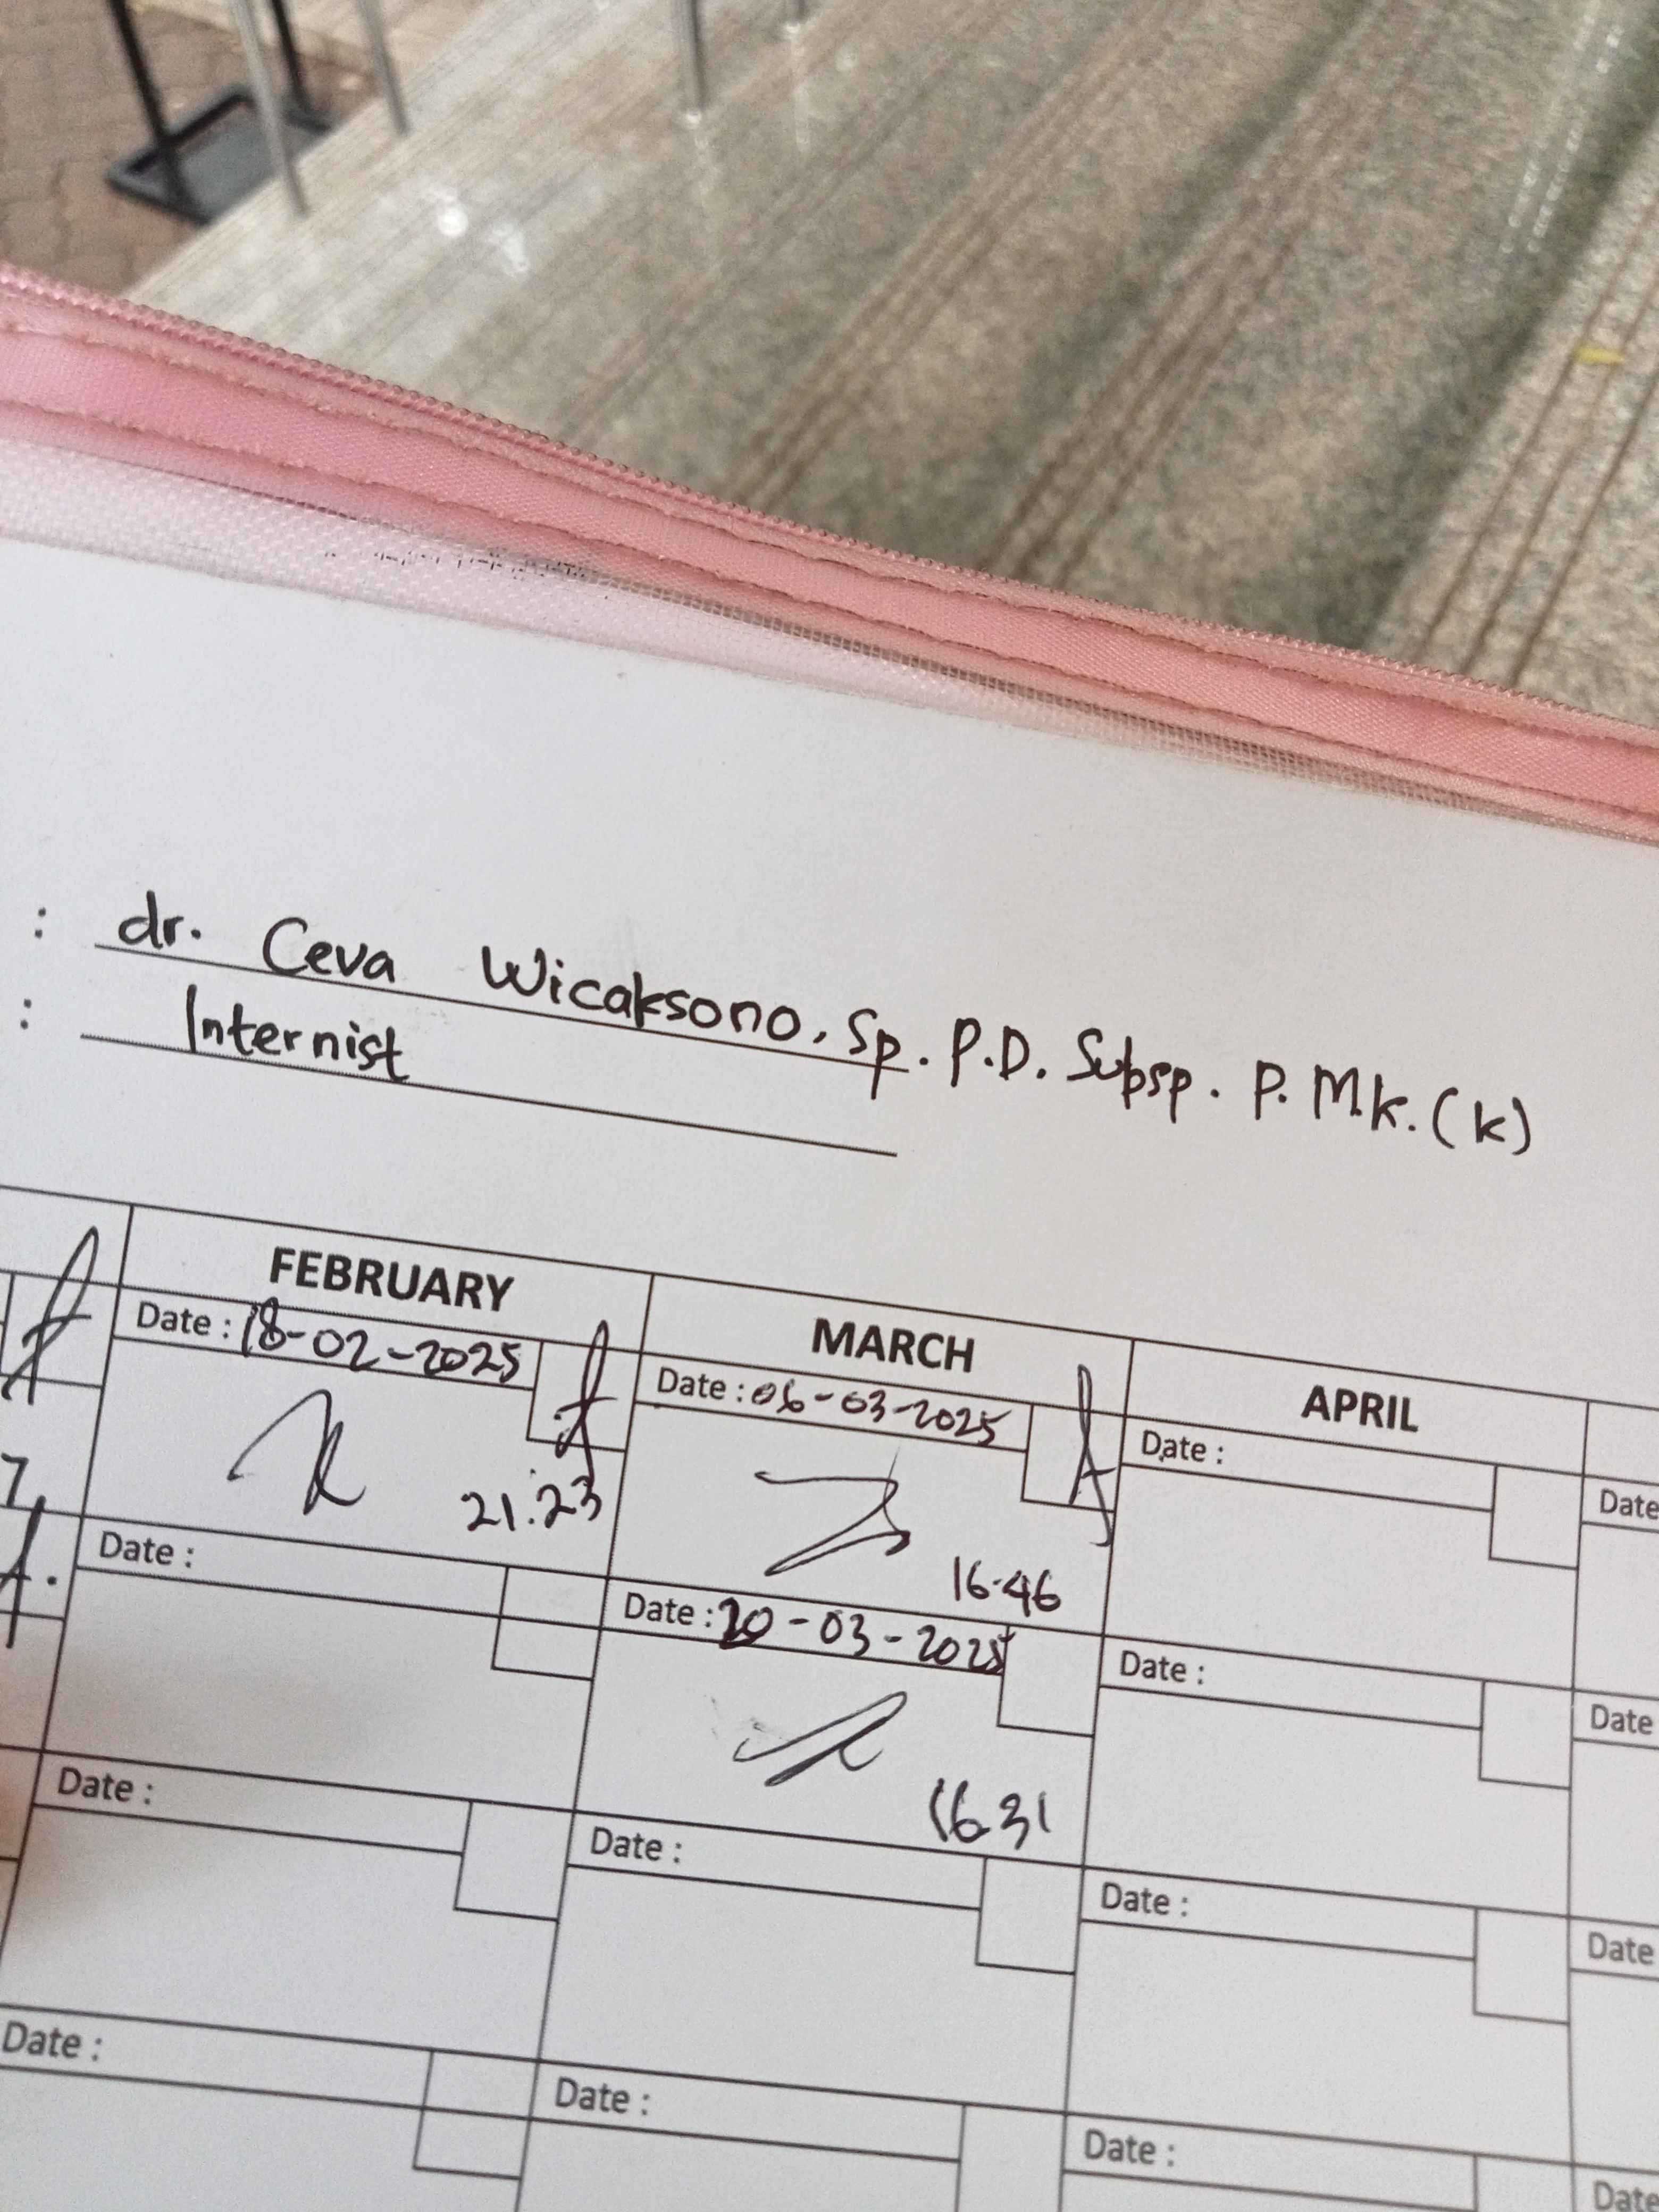 : dr. Ceva Wicaksono, Sp. P.D. Subsp. P. M.k. (k)
: Internist
FEBRUARY
MARCH
APRIL
Date : 18-02-2025
Date : 06-03-2025
Date :
Date
21.23
16.46
7,
Date :
Date : 20-03-2025
Date :
Date
16.31
Date :
Date :
Date :
Date
Date :
Date :
Date :
Date